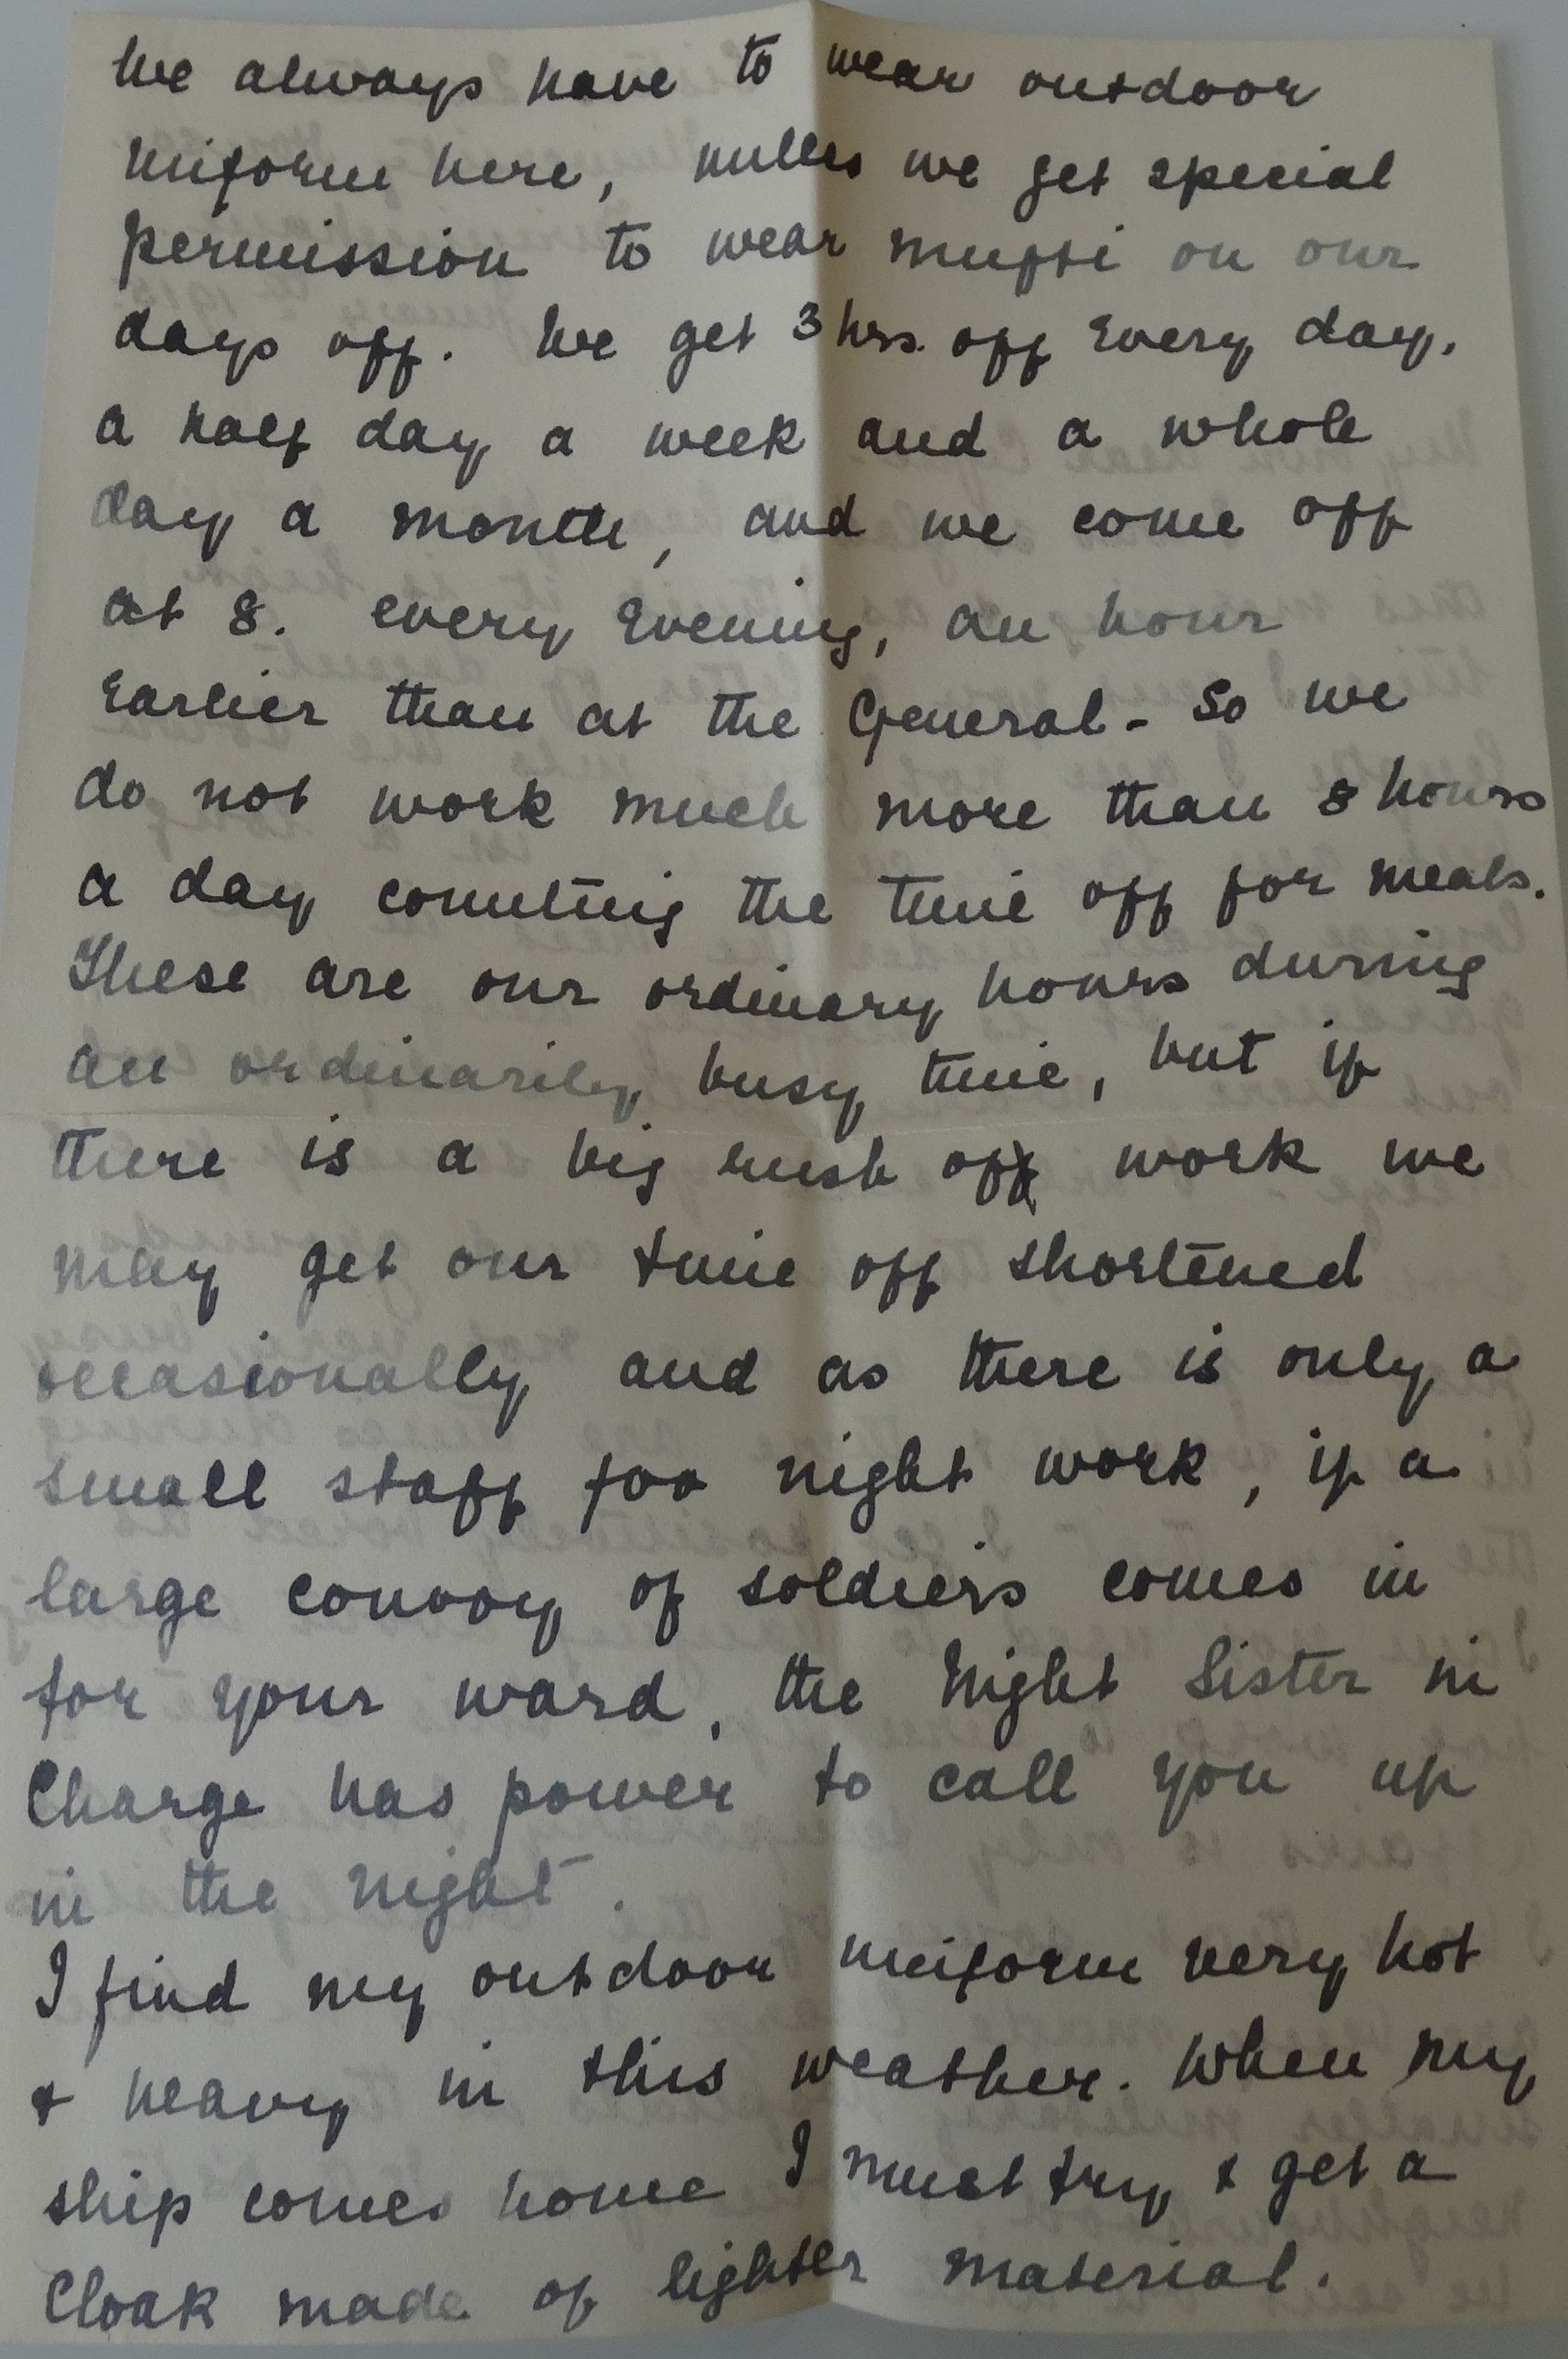 We always have to wear outdoor
uniform here, unless we get special
permission to wear mufti on our
days off. We get 3 hrs. off every day,
a half day a week and a whole
day a month, and we come off
at 8. every evening, an hour
earlier than at the General - so we
do not work much more than 8 hours
a day counting the time off for meals.
These are our ordinary hours during
an ordinarily busy time, but if
there is a big rush of work we
may get our time off shortened
occasionally and as there is only a
small staff for night work, if a
large convoy of soldiers comes in
for your ward, the Night Sister in
Charge has power to call you up
in the night.
I find my outdoor uniform very hot
& heavy in this weather. When my
ship comes home I must try & get a
Cloak made of lighter material.